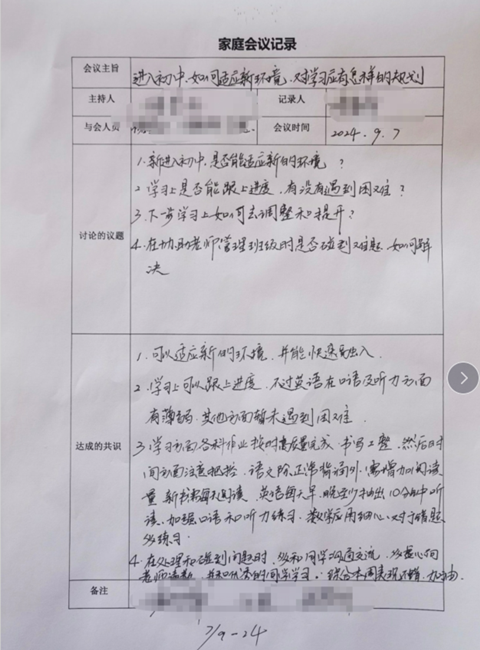 家庭会议记录
会议主旨 进入初中,如何适应新环境,对学习应有怎样的规划
主持人 记录人
与会人员 会议时间 2024.9.7
讨论的议题
1.新进入初中,是否能适应新的环境?
2.学习上是否能跟上进度,有没有遇到困难?
3.下步学习上如何去调整和提升?
4.在协助老师管理班级时是否碰到难题,如何解
决
达成的共识
1.可以适应新的环境,并能快速融入.
2.学习上可以跟上进度,不过英语在口语及听力方面
有薄弱,其他方面暂未遇到困难.
3.学习方面各科作业按时高质量完成,书写工整,然后时
间方面注意把控,语文除正常背诵外,需增加阅读
量,新书每天阅读,英语每天早、晚至少抽出10分钟听
读,加强口语和听力练习,数学应再细心,对于错题
多练习.
4.在处理和碰到问题时,多和同学沟通交流,多虚心向
老师请教,
备注
7/9-24